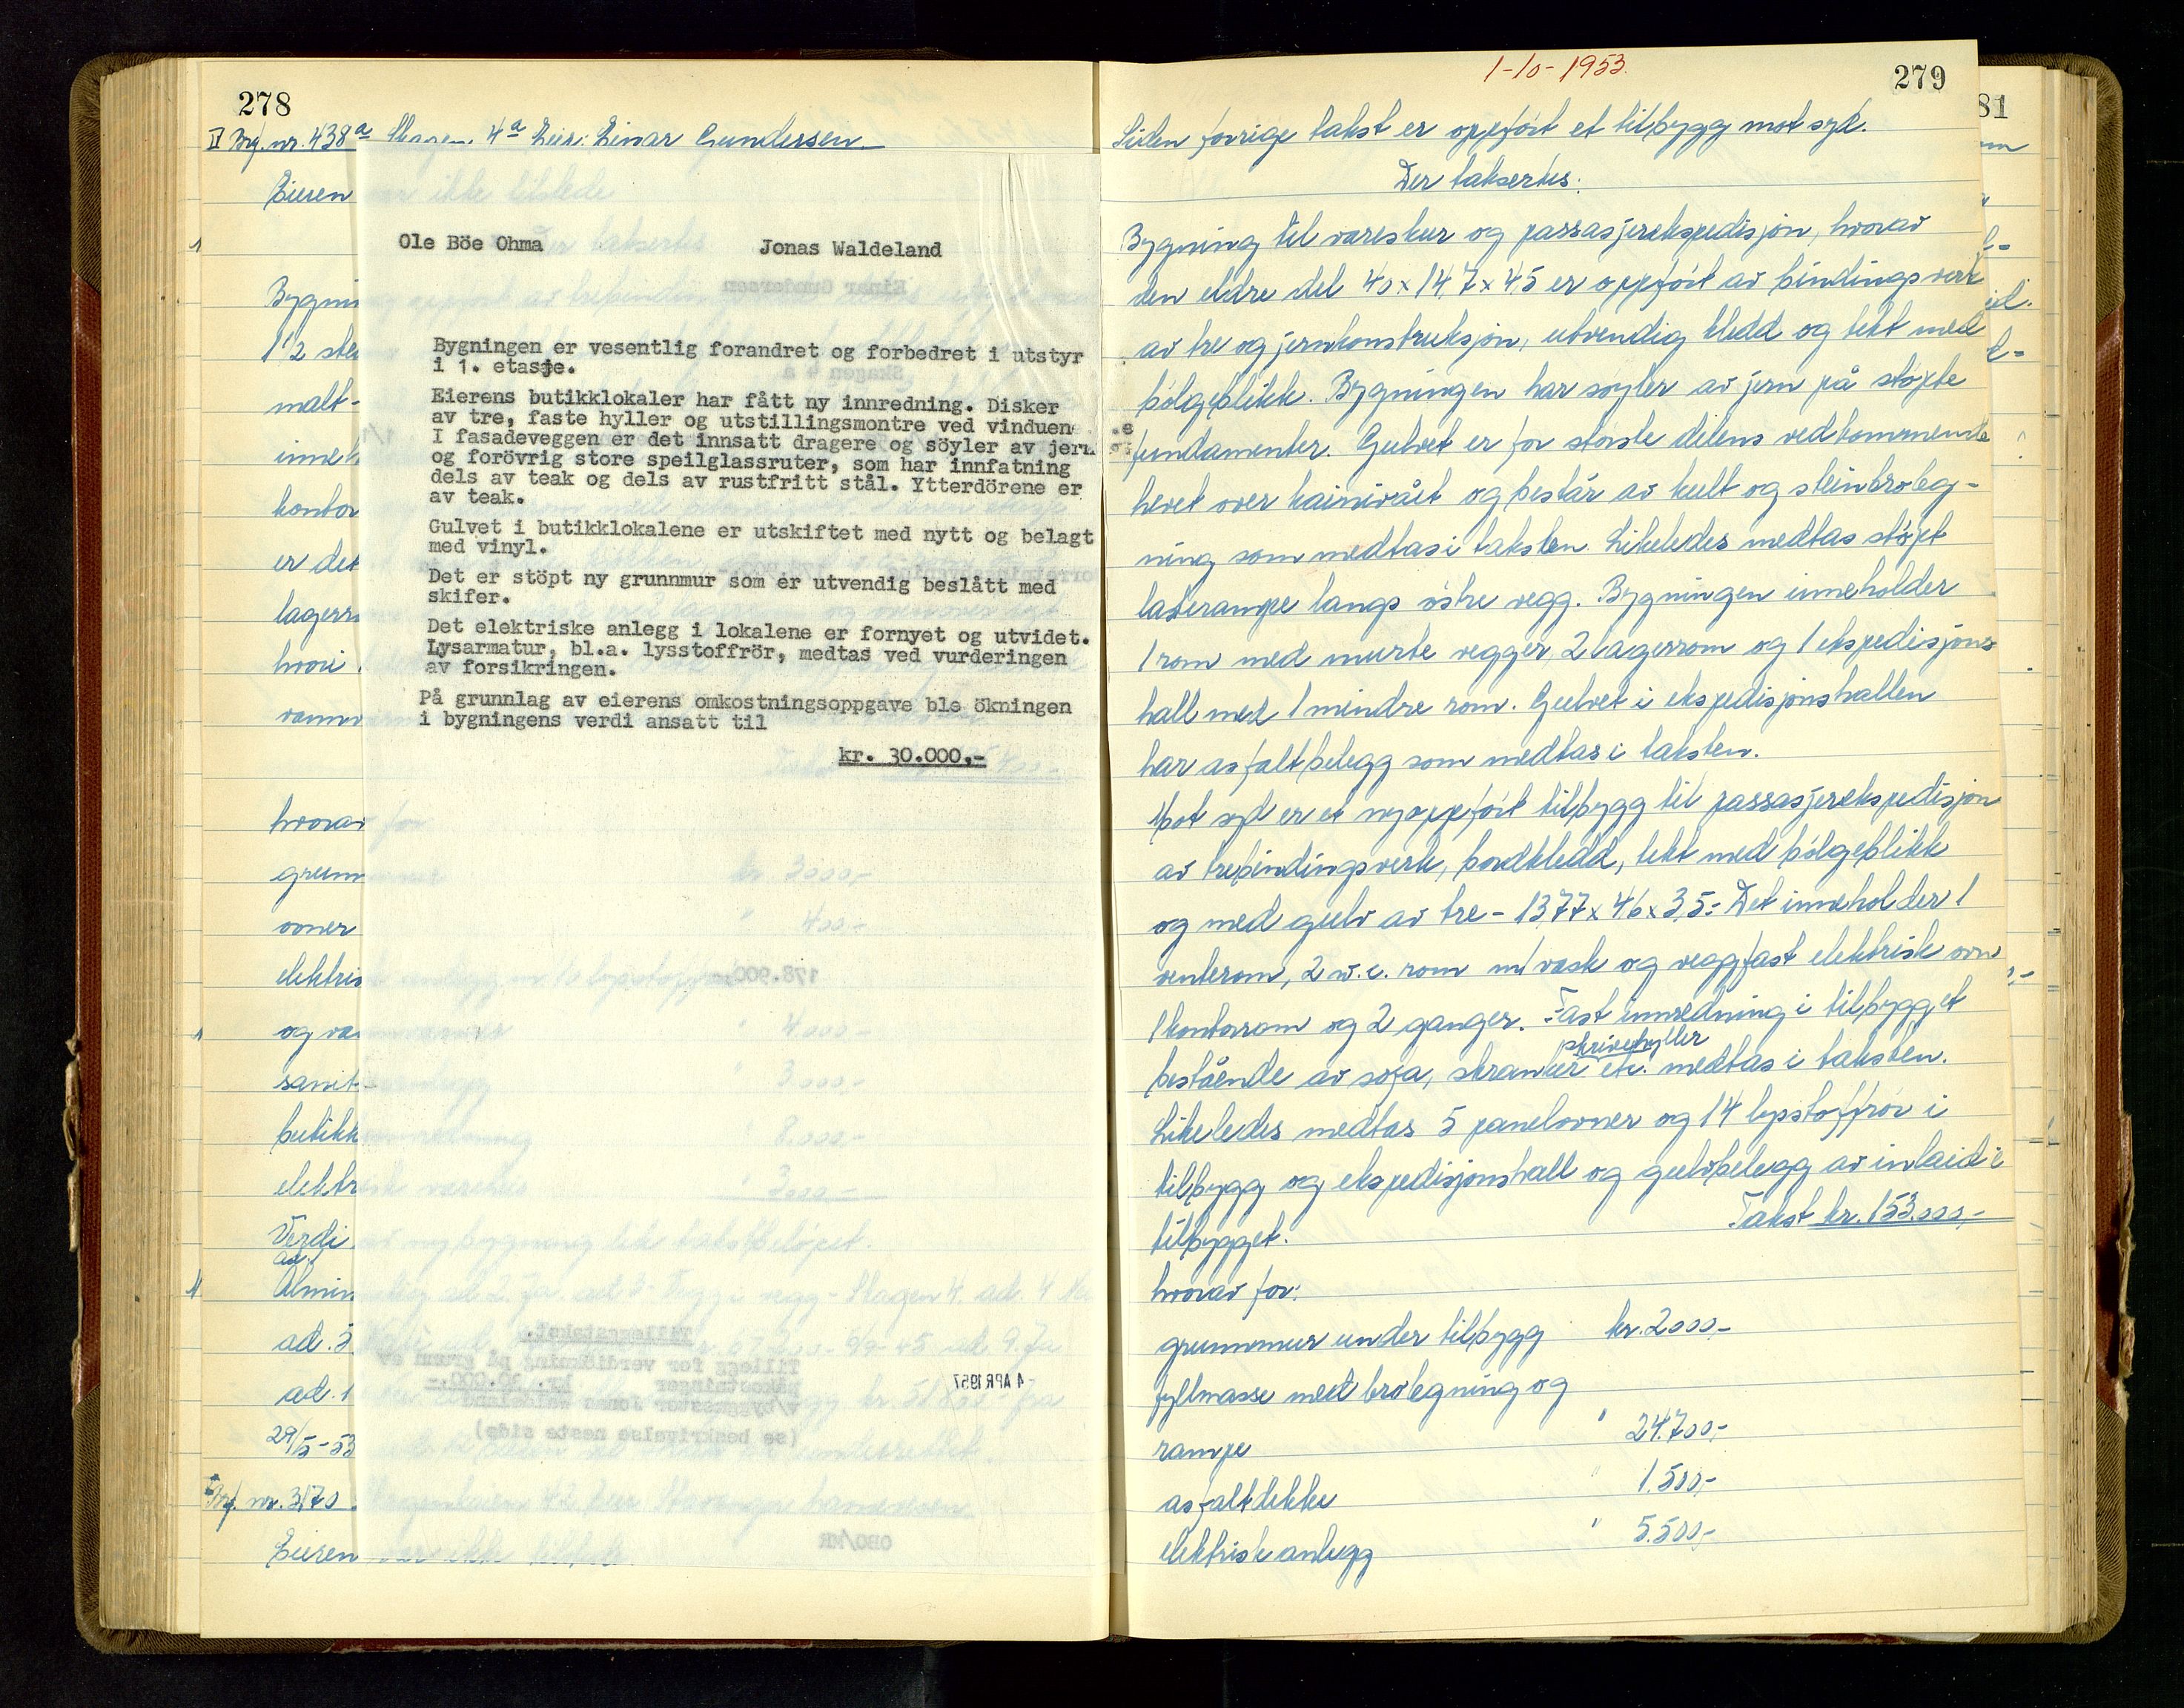 278
IV Brf. nr. 438a Skagen. 4a Eier: Einar Gundersen
Eieren
Ole Böe Ohma
Jonas Waldeland
Bygnin
1 1/2 ste
malt-
inneh
kontor
er det
lagerr
hvori
vannv
Bygningen er vesentlig forandret og forbedret i utstyr
i 1. etasje.
Eierens butikklokaler har fått ny innredning. Disker
av tre, faste hyller og utstillingsmontre ved vinduene
I fasadeveggen er det innsatt dragere og söyler av jern
og forövrig store speilglassruter, som har innfatning
dels av teak og dels av rustfritt stål. Ytterdörene er
av teak.
Gulvet i butikklokalene er utskiftet med nytt og belagt
med vinyl.
Det er stöpt ny grunnmur som er utvendig beslått med
skifer.
Det elektriske anlegg i lokalene er fornyet og utvidet.
Lysarmatur, bl.a. lysstoffrör, medtas ved vurderingen
av forsikringen.
På grunnlag av eierens omkostningsoppgave ble ökningen
i bygningens verdi ansatt til
kr. 30.000,-
hvorav
grunn
ovner
elektris
og va
sanit-
butikk
elektr
Verdi
ad. 1
Almin
ad. 3
ad. 1
29/5-53
Brf. nr. 3170
Eieren
1-10-1953.
279
81
Siden forrige takst er oppført et tilbygg mot syd.
Der taksertes:
Bygning til vareskur og passasjerekspedisjon, hvorav
den eldre del 40 x 14,7 x 4,5 er oppført av bindingsverk
av tre og jernkonstruksjon, utvendig kledd og tekt med
bølgeblikk. Bygningen har søyler av jern på støpte
fundamenter. Gulvet er for største delens vedkommende
hevet over kainivået og består av kult og steinbroleg-
ning som medtas i taksten. Likeledes medtas støpt
lasterampe langs østre vegg. Bygningen inneholder
1 rom med murte vegger, 2 lagerrom og 1 ekspedisjons
hall med 1 mindre rom. Gulvet i ekspedisjonshallen
har asfaltbelegg som medtas i taksten.
Mot syd er et nyoppført tilbygg til passasjerekspedisjon
av trebindingsverk, bordkledd, tekt med bølgeblikk
og med gulv av tre - 13,77 x 4,6 x 3,5 - Det inneholder 1
venterom, 2 w.c. rom m/ vask og veggfast elektrisk ovn
1 kontorrom og 2 ganger. Fast innredning i tilbygget
skrivehyller
bestående av sofa, skranker etc. medtas i taksten.
Likeledes medtas 5 panelovner og 14 lysstoffrør i
tilbygg og ekspedisjonshall og gulvbelegg av inlaid i
tilbygget.
Takst kr. 153.000,-
hvorav for:
grunnmur under tilbygg kr. 2000,-
fyllmasse med brolegning og
rampe " 24.700,-
asfaltdekke " 1.500,-
elektrisk anlegg " 5.500,-